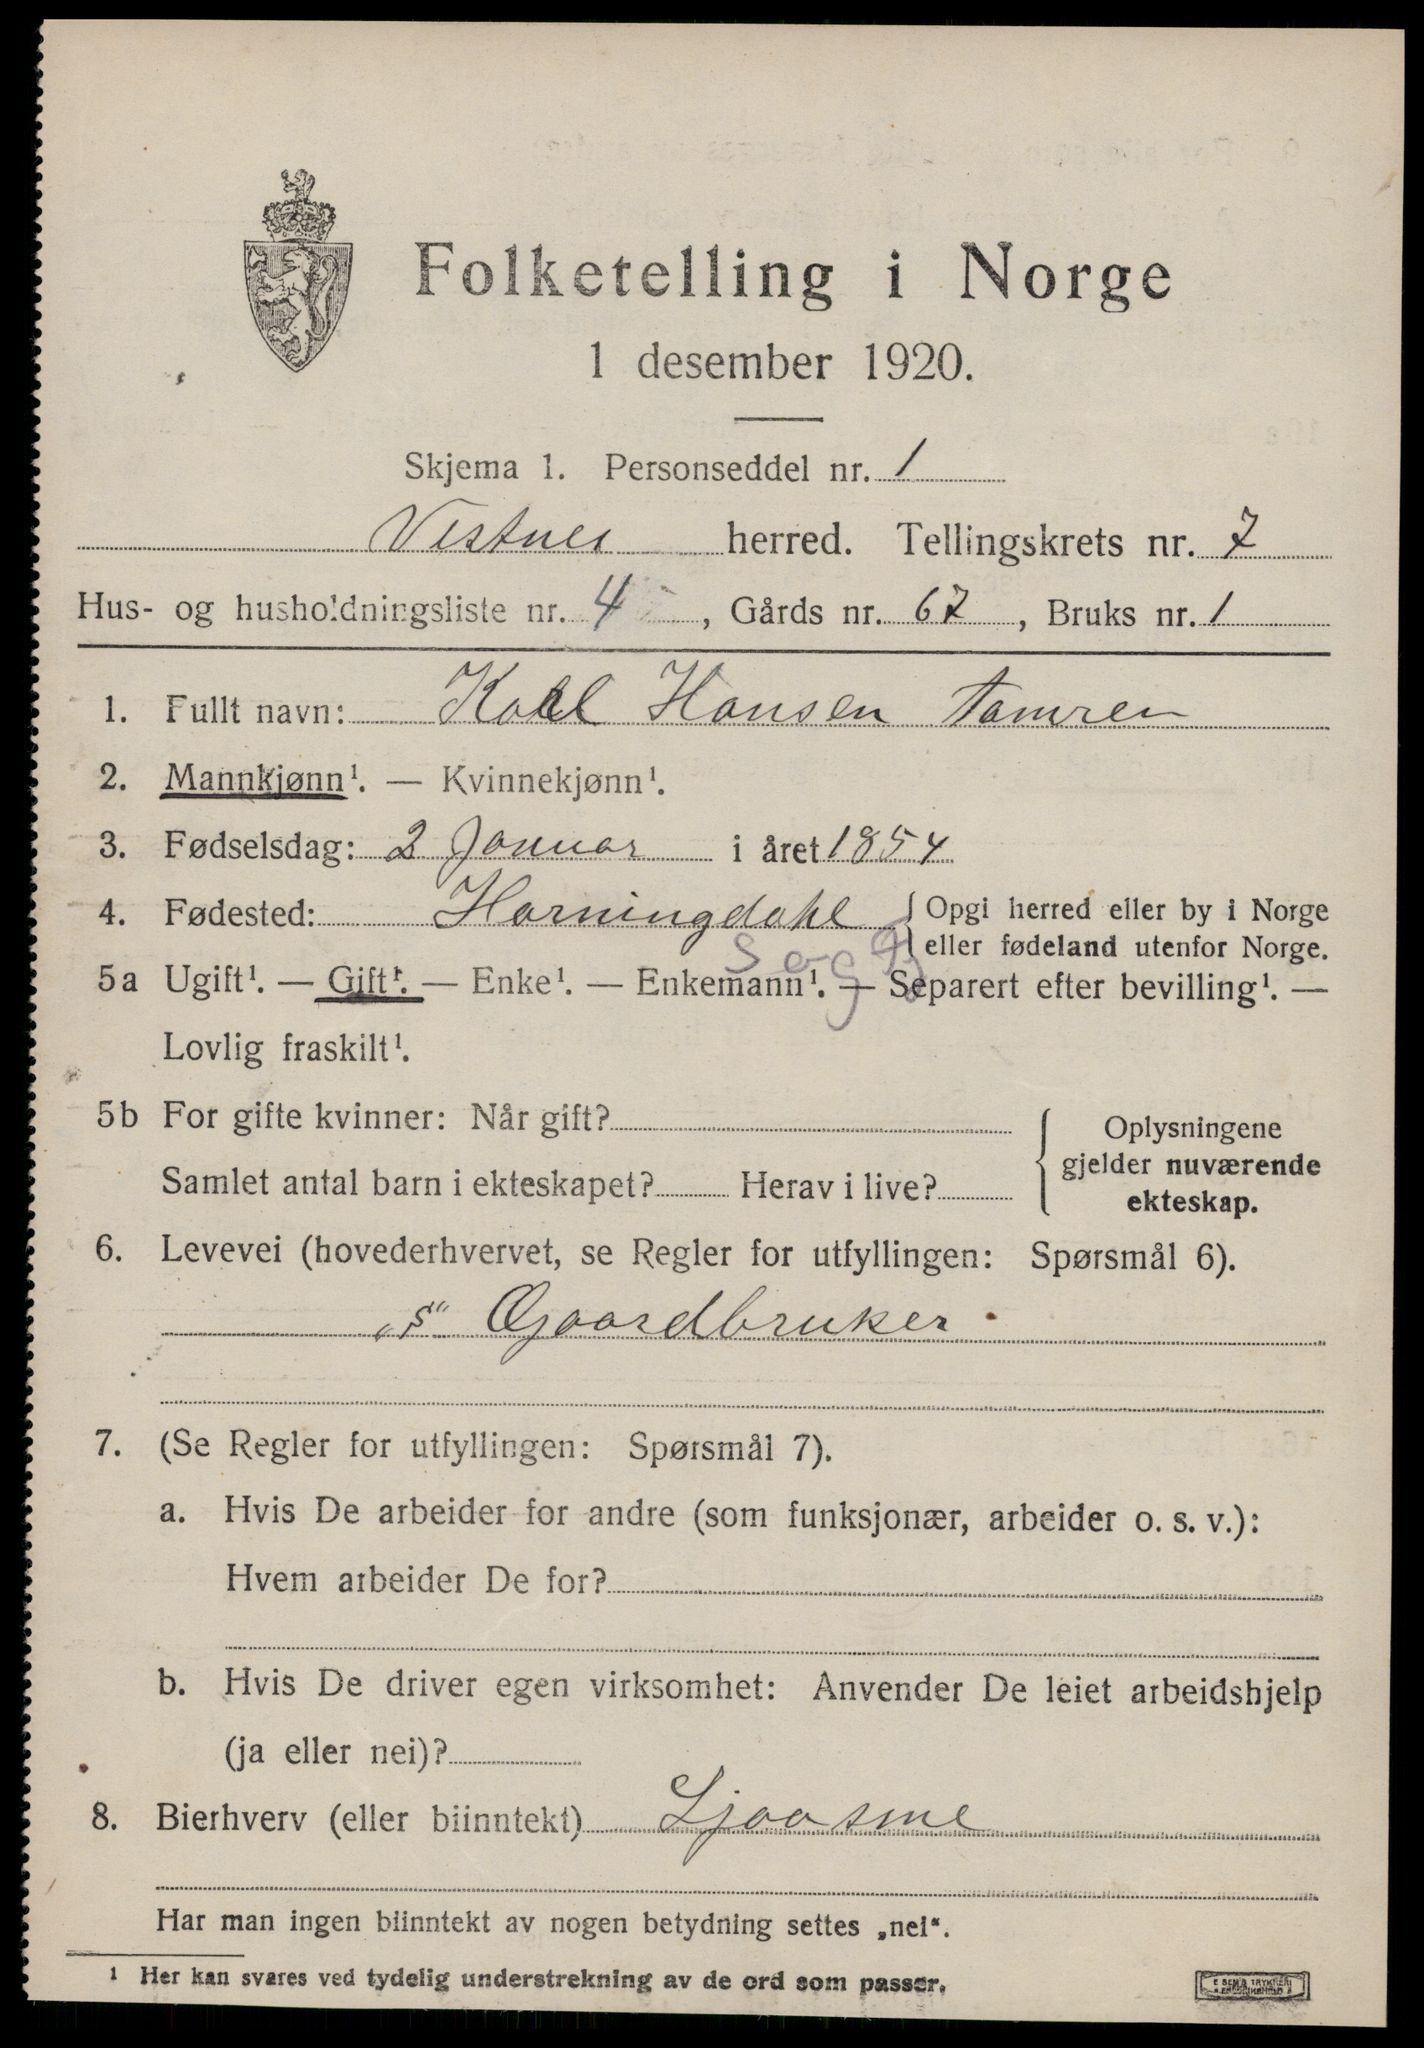 Folketelling i Norge
1 desember 1920.
Skjema 1. Personseddel nr. 1
Vestnes herred. Tellingskrets nr. 7
Hus- og husholdningsliste nr. 4, Gårds nr. 67, Bruks nr. 1
1. Fullt navn: Hansen Tamren
2. Mannkjønn¹. — Kvinnekjønn¹.
3. Fødselsdag: 2 Januar i året 1854
4. Fødested: Horningdahl { Opgi herred eller by i Norge
eller fødeland utenfor Norge.
Sogfj
5a Ugift¹. — Gift¹. — Enke¹. — Enkemann¹. — Separert efter bevilling¹. —
Lovlig fraskilt¹.
5b For gifte kvinner: Når gift?
Samlet antal barn i ekteskapet? Herav i live?
Oplysningene
gjelder nuværende
ekteskap.
6. Levevei (hovederhvervet, se Regler for utfyllingen: Spørsmål 6).
"S" Gaardbruker
7. (Se Regler for utfyllingen: Spørsmål 7).
a. Hvis De arbeider for andre (som funksjonær, arbeider o. s. v.):
Hvem arbeider De for?
b. Hvis De driver egen virksomhet: Anvender De leiet arbeidshjelp
(ja eller nei)?
8. Bierhverv (eller biinntekt)
Har man ingen biinntekt av nogen betydning settes „nei“.
¹ Her kan svares ved tydelig understrekning av de ord som passer.